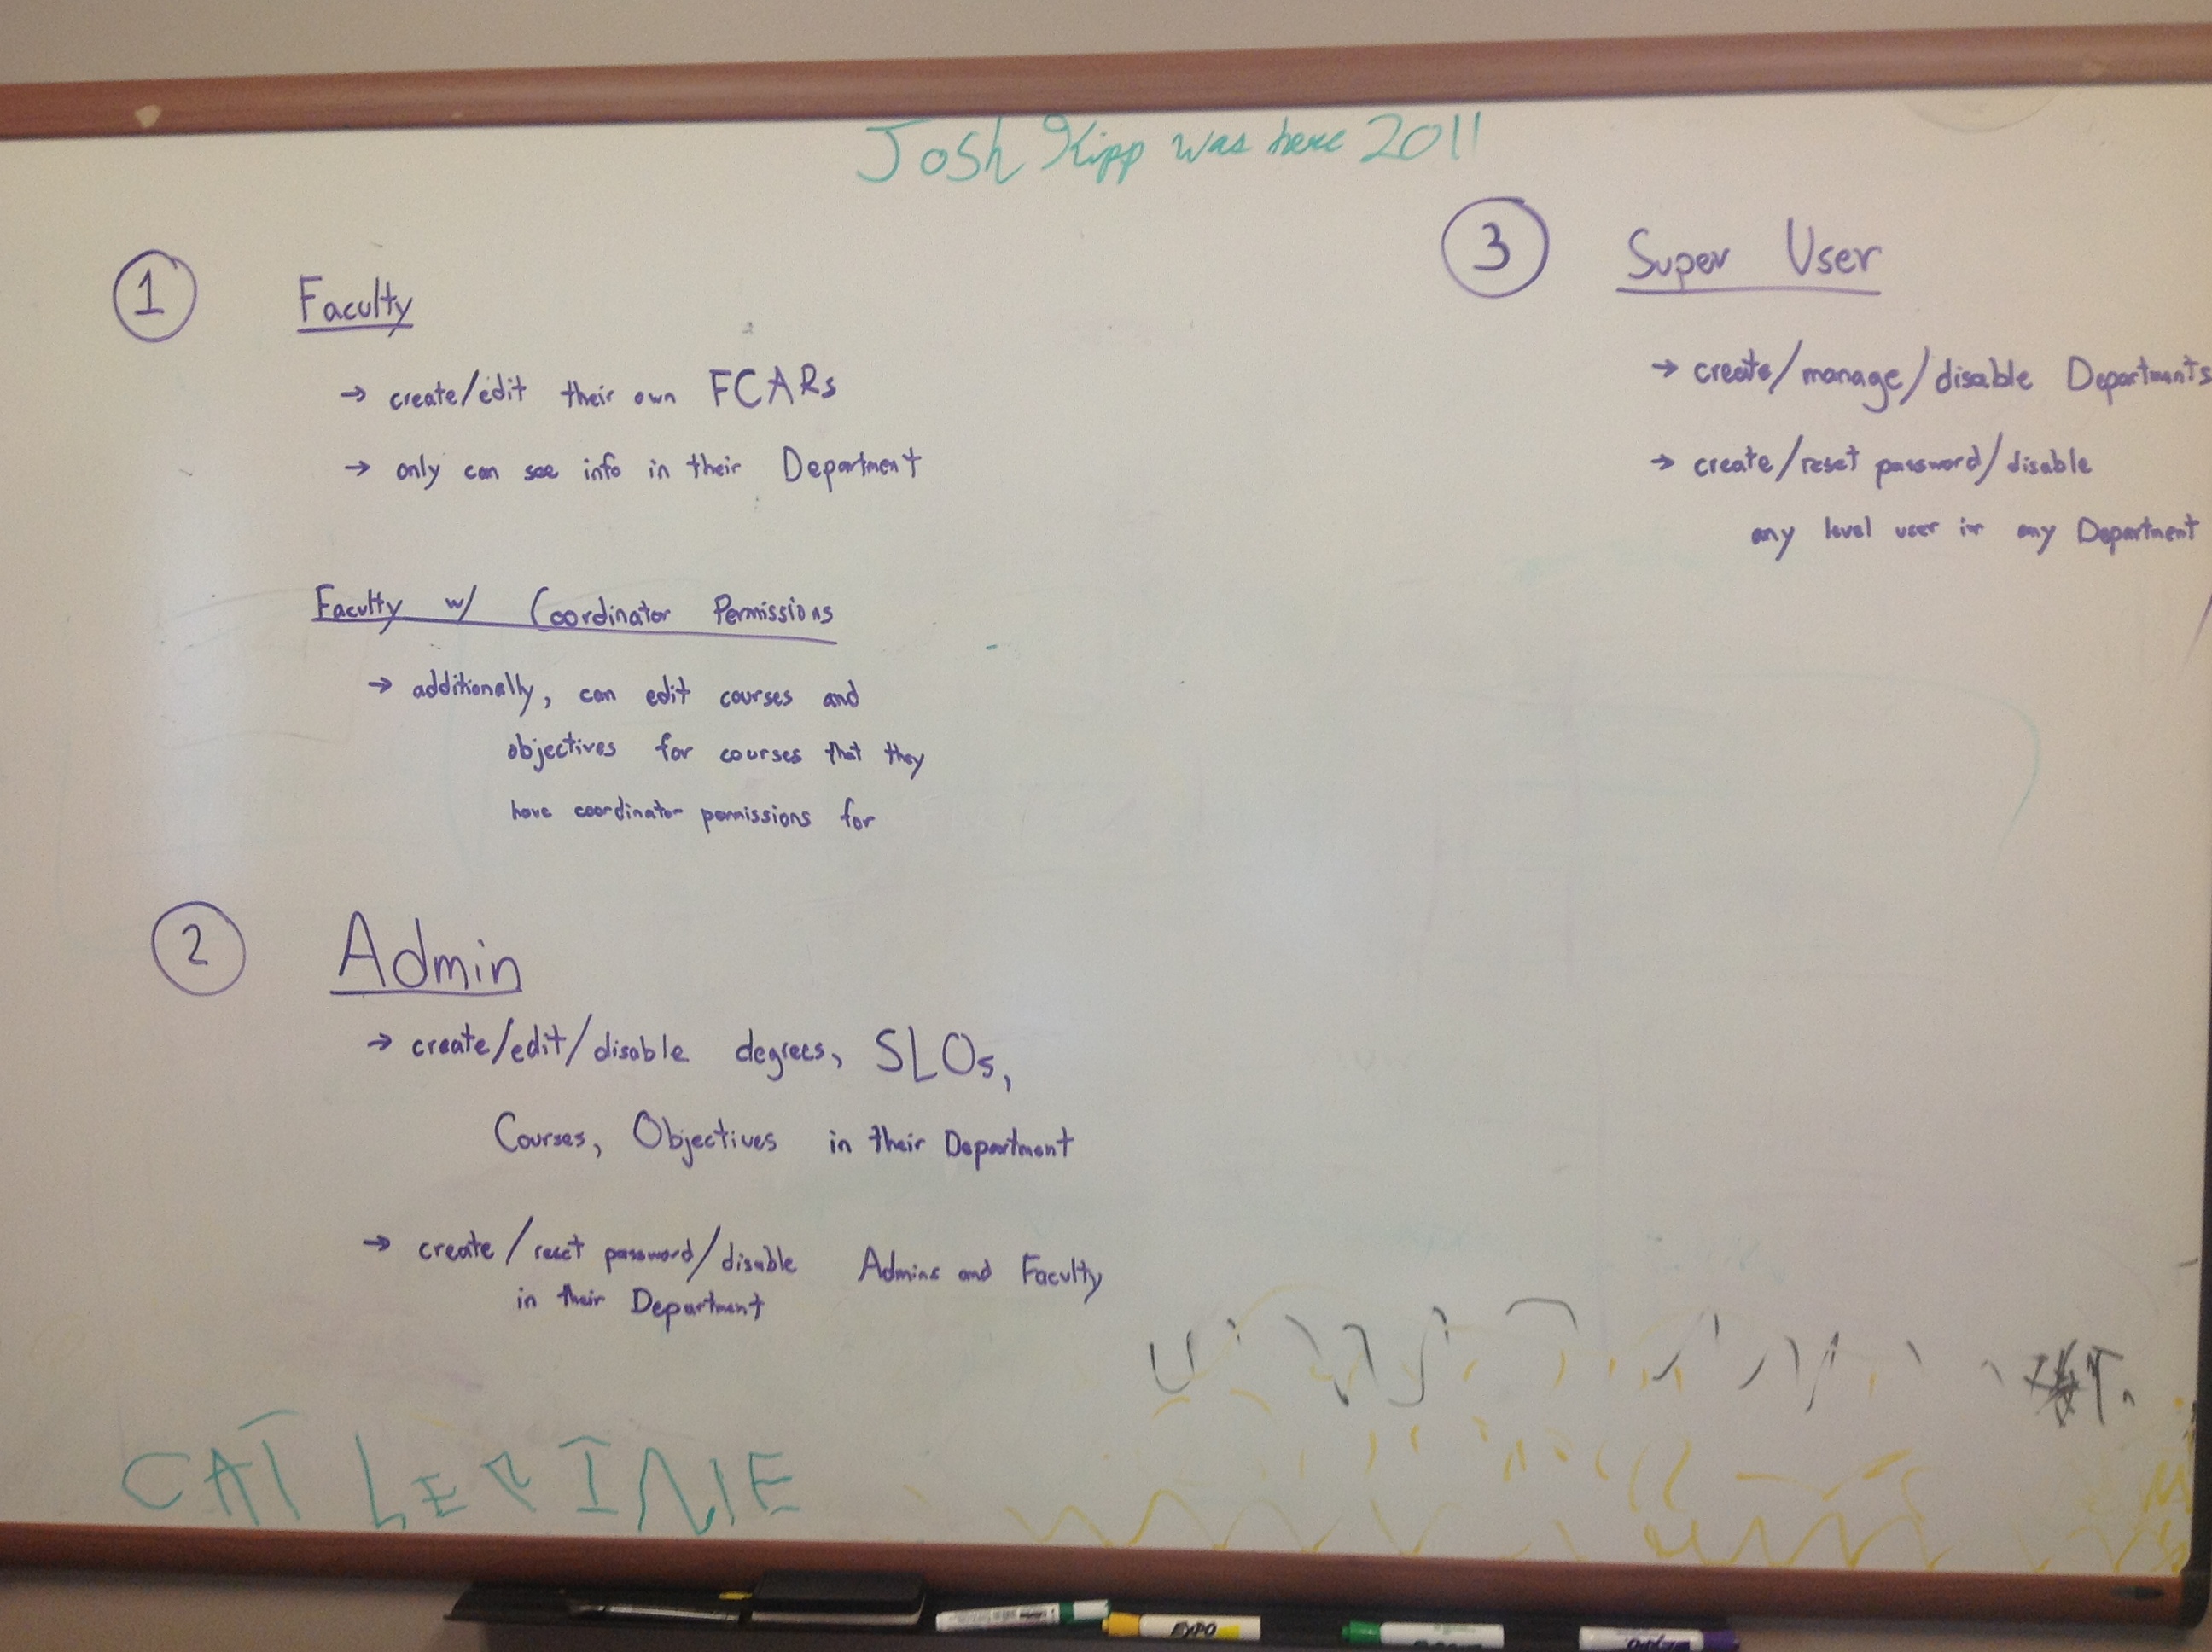 Josh Kipp was here 2011
1 Faculty
→ create/edit their own FCARs
→ only can see info in their Department
Faculty w/ Coordinator Permissions
→ additionally, can edit courses and
objectives for courses that they
have coordinator permissions for
2 Admin
→ create/edit/disable degrees, SLOs,
Courses, Objectives in their Department
→ create/reset password/disable Admins and Faculty
in their Department
3 Super User
→ create/manage/disable Departments
→ create/reset password/disable
any level user in any Department
CAT LEPINE
EXPO